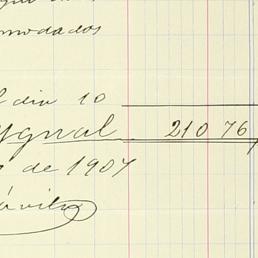 modados
l dia 10
Ygual 210 76
de 1907
ávila